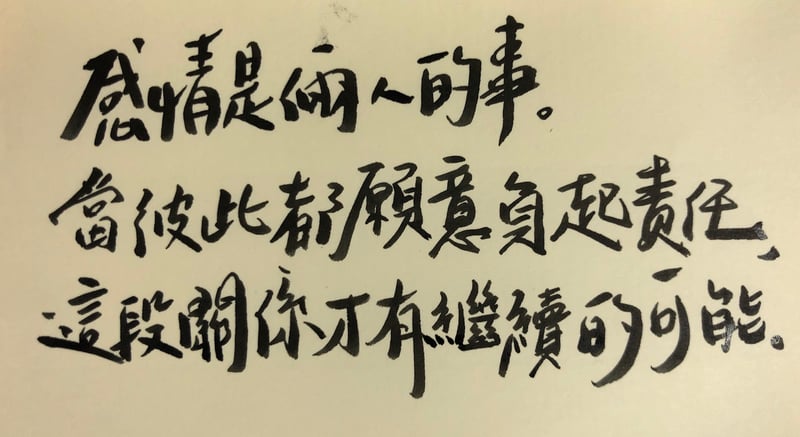 感情是倆人的事。
當彼此都願意負起責任、
這段關係才有繼續的可能、